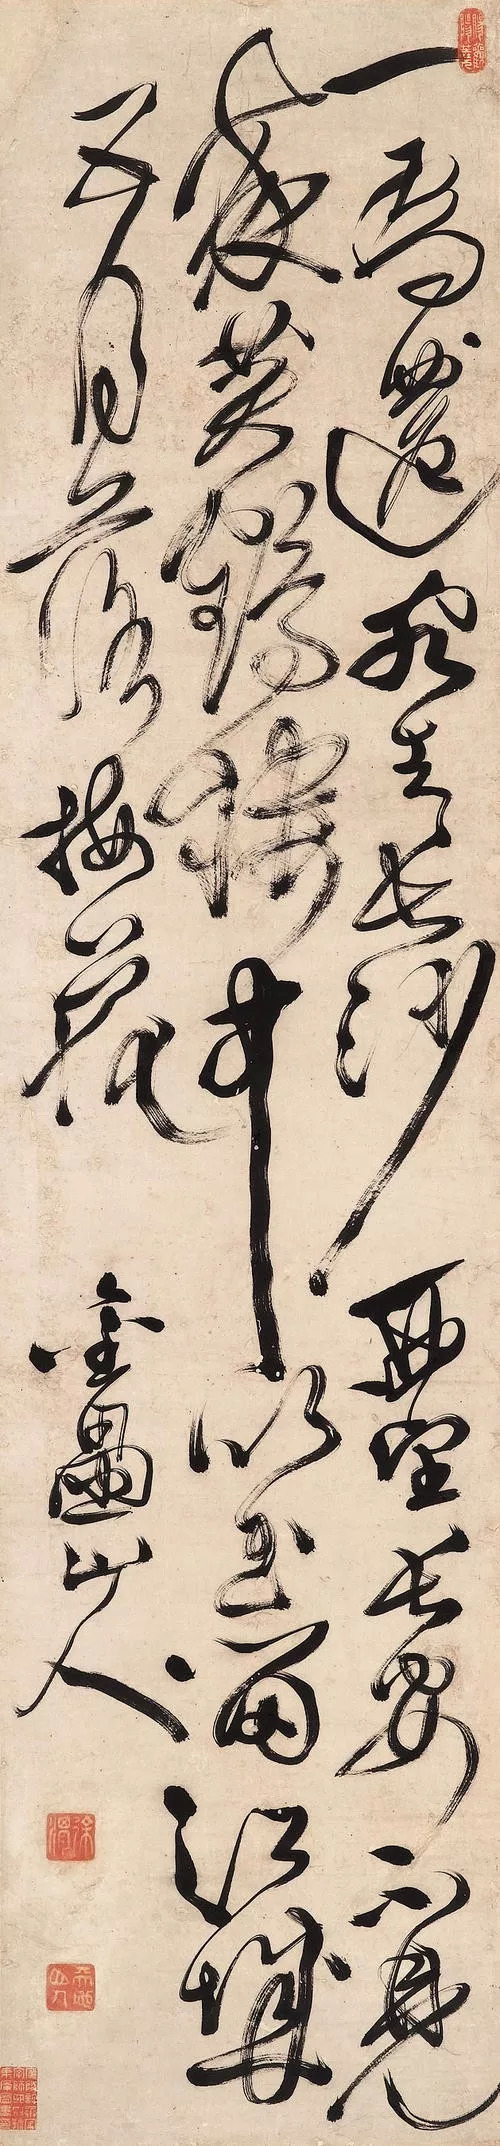 一為遷客去長沙西望長安不見
家黃鶴樓中吹玉笛江城
五月落梅花
金壘山人
徐渭
天池山人